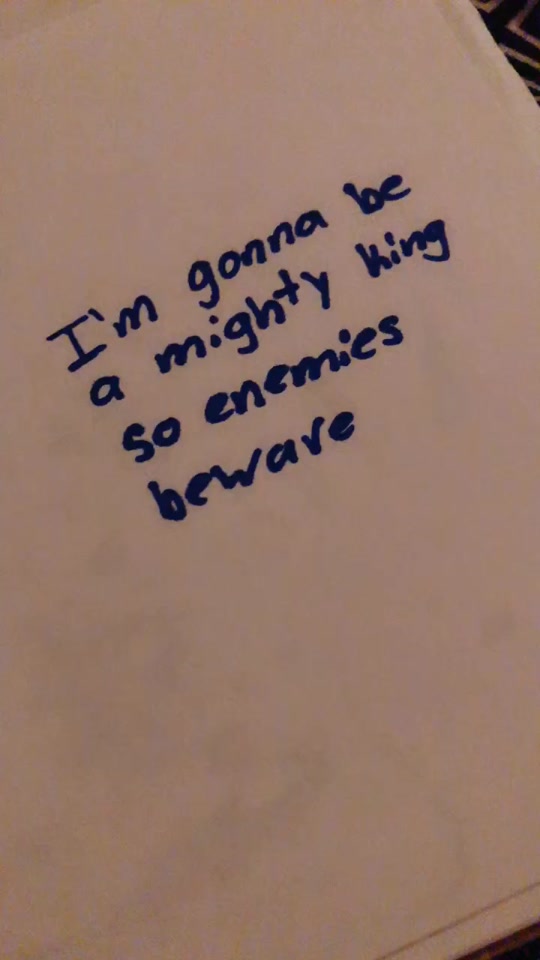 I'm gonna be
a mighty king
so enemies
beware